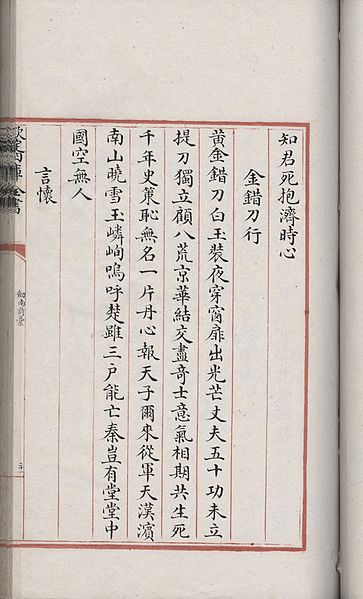 知君死抱濟時心
金錯刀行
黄金錯刀白玉裝夜穿窗扉出光芒丈夫五十功未立
提刀獨立顧八荒京華結交盡竒士意氣相期共生死
千年史䇿恥無名一片丹心報天子爾來從軍天漢濱
南山曉雪玉嶙峋嗚呼楚雖三户能亡秦豈有堂堂中
國空無人
言懷
欽定四庫全書
劒南詩藁